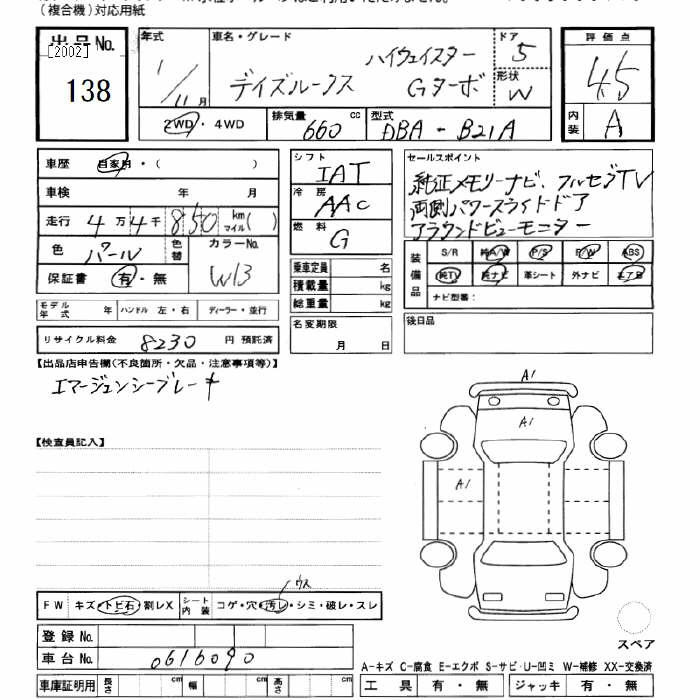 (複合機)対応用紙
出品No. [2002] 138
年式 1/11月
車名・グレード デイズルークス ハイウェイスター Gターボ
ドア 5
形状 W
2WD・4WD
排気量 660 cc
型式 DBA-B21A
評価点 4.5
内装 A
車歴 自家用・( )
車検 年 月
走行 4万4千850 km マイル( )
色 パール 色替 カラーNo. W13
保証書 有・無
モデル年式 年 ハンドル 左・右 ディーラー・並行
リサイクル料金 8230 円 預託済
シフト IAT
冷房 AAC
燃料 G
乗車定員 名
積載量 kg
総重量 kg
名変期限 月 日
セールスポイント
純正メモリーナビ、フルセグTV
両側パワースライドドア
アラウンドビューモニター
装備品 S/R 純A/W P/S P/W ABS
純TV 純ナビ 革シート 外ナビ エアB
ナビ型番:
後日品
【出品店申告欄(不良箇所・欠品・注意事項等)】
エマージェンシーブレーキ
【検査員記入】
A1
A1
A1
ウス
FW キズ・トビ石・割レX シート内装 コゲ・穴・汚レ・シミ・破レ・スレ
登録No.
車台No. 0616090
車庫証明用 長さ cm 幅 cm 高さ cm
スペア
A-キズ C-腐食 E-エクボ S-サビ U-凹ミ W-補修 XX-交換済
工具 有・無 ジャッキ 有・無